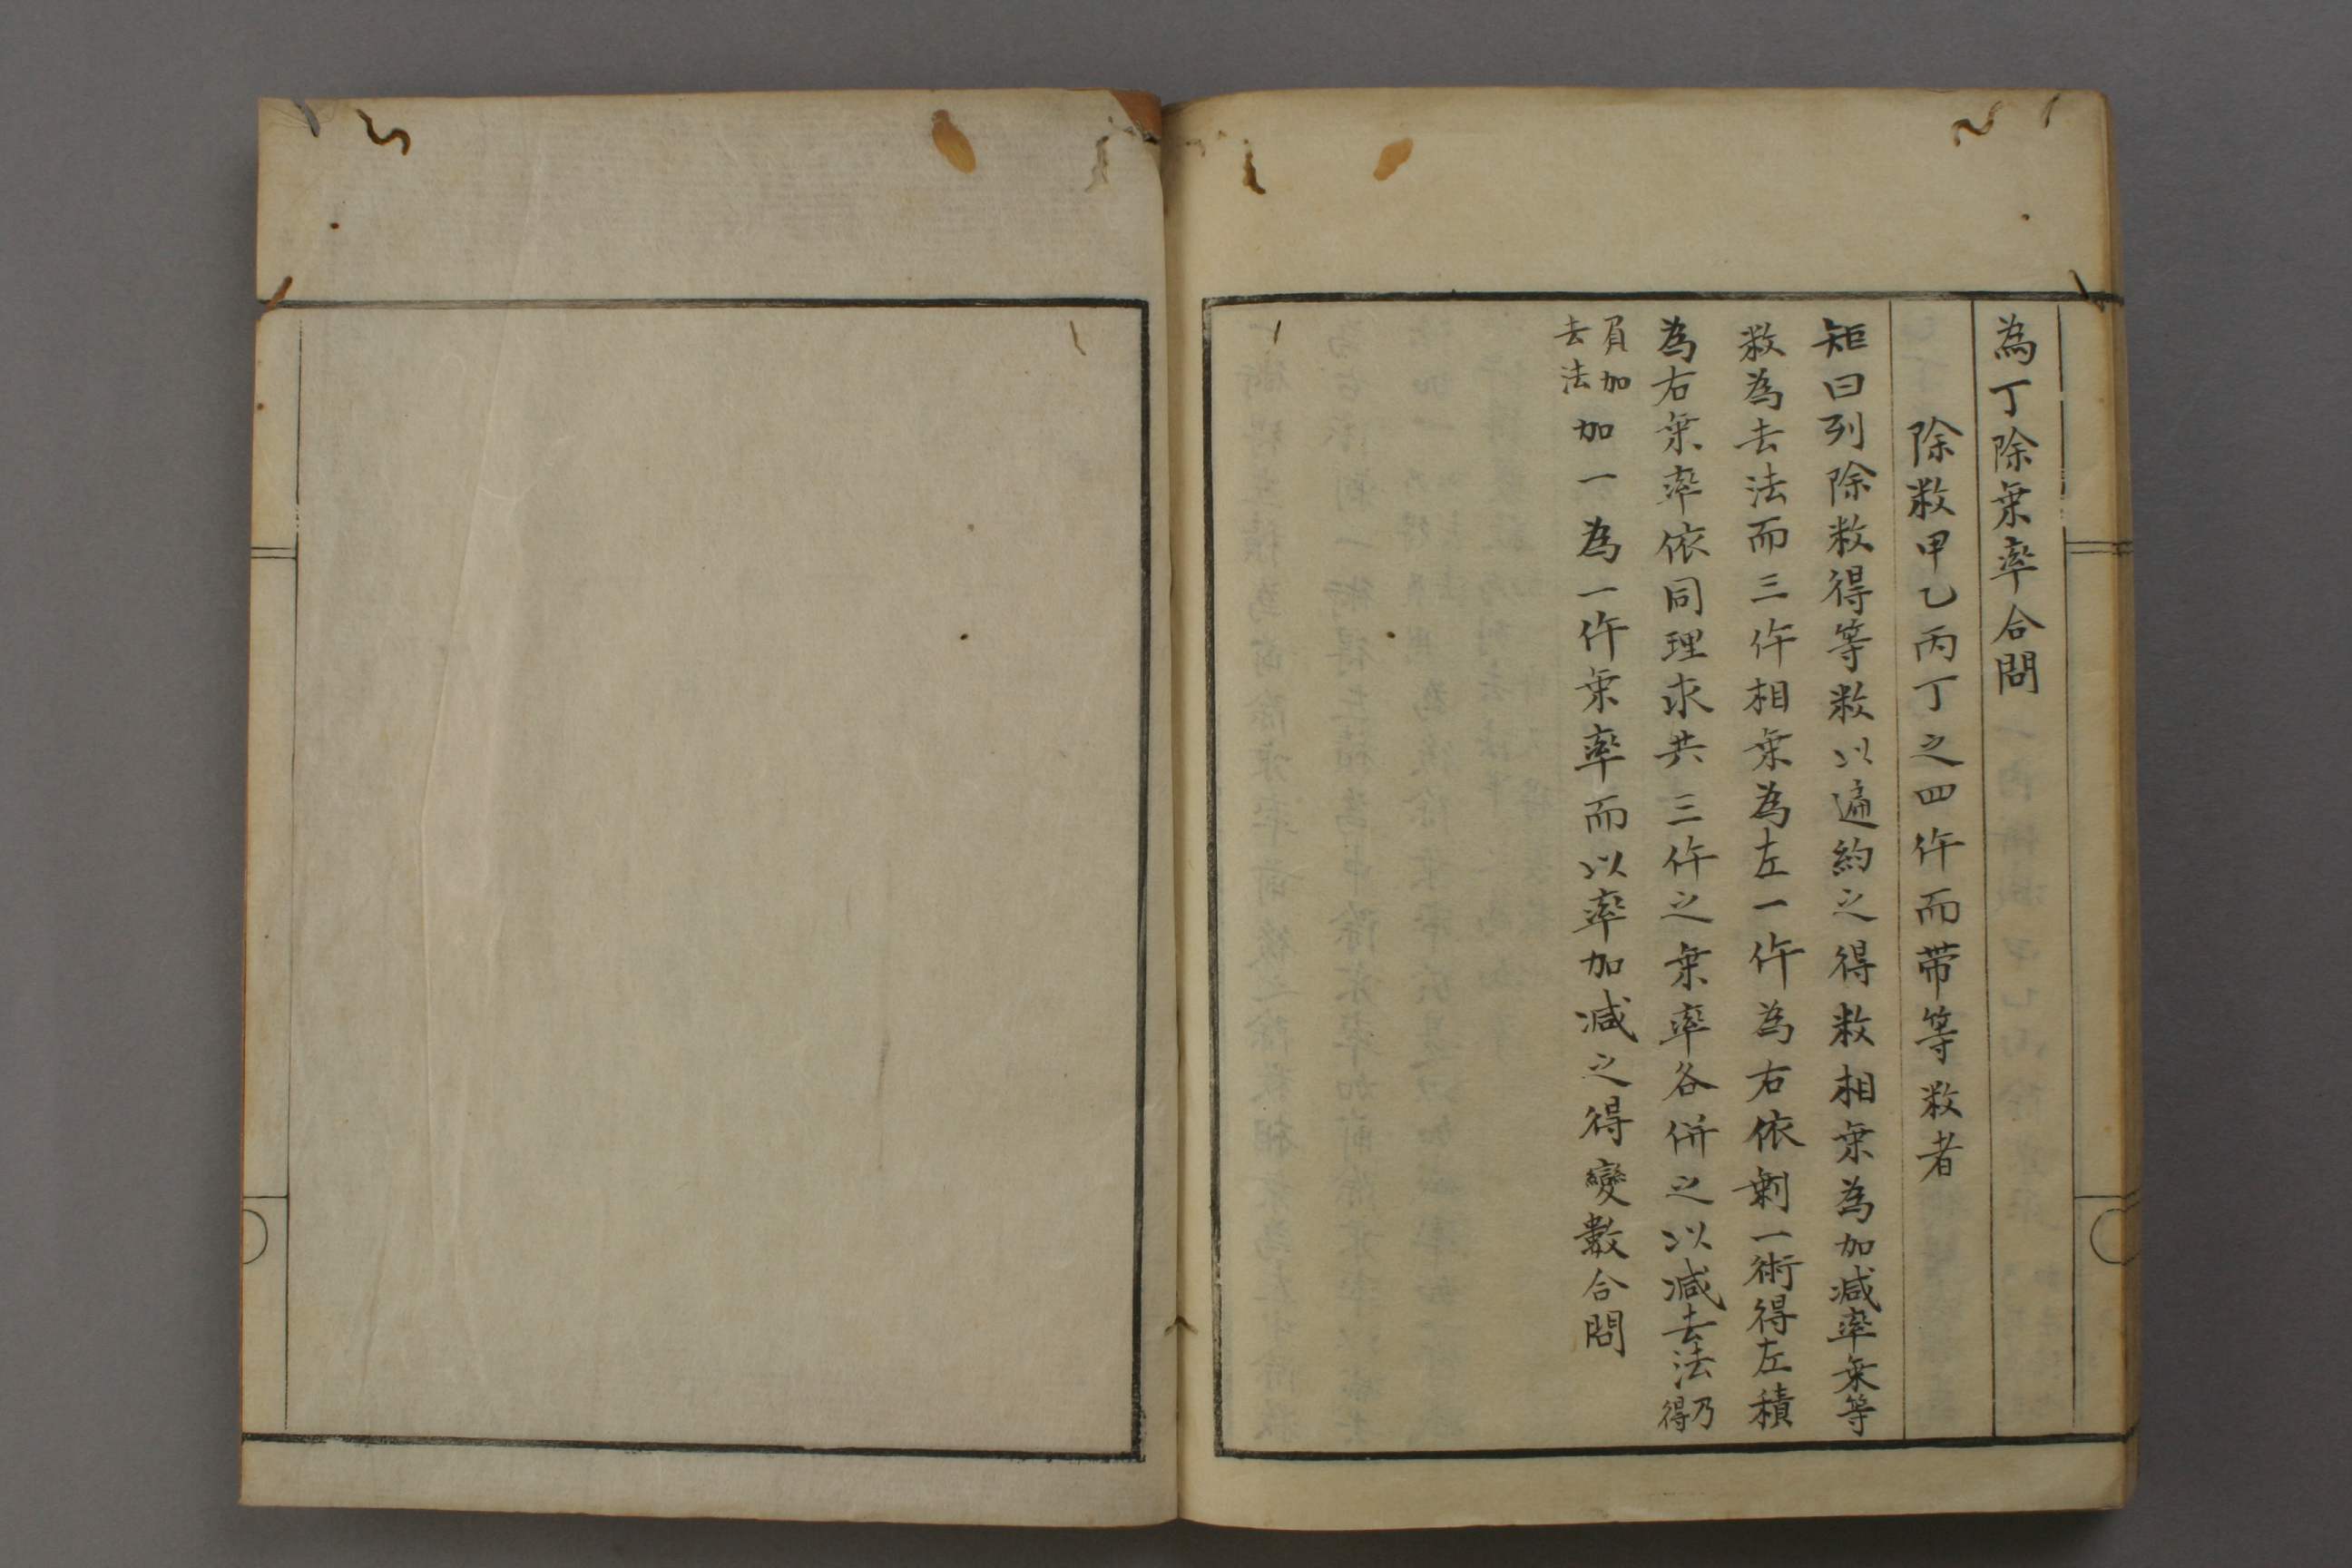 為丁除乗率合問
除数甲乙丙丁之四件而帯等数者
矩曰列除数得等数以遍約之得数相乗為加減率乗等
数為去法而三件相乗為左一件為右依剰一術得左積
為右乗率依同理求共三件之乗率各併之以減去法乃得
負加去法加一為一件乗率而以率加減之得變數合問